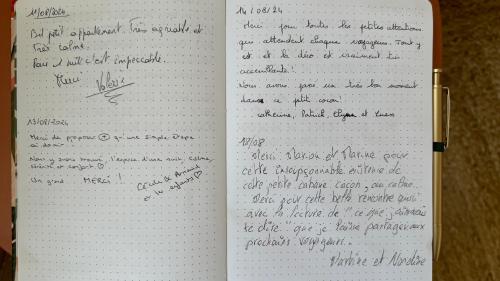 11/08/2024
Bel petit appartement. Très agréable et
Très calme.
Pour 1 nuit c'est impeccable.
Merci
Valérie
13/08/2024
Merci de proposer + qu'une simple étape
où dormir.
Nous y avons trouvé, l'espace d'une nuit, calme,
sérénité et confort
Un grand MERCI !
Cécile & Arnaud
et les enfants
14/08/24
Merci pour toutes les petites attentions
qui attendent chaque voyageur. Tout y
est et la déco est vraiment très
accueillante !
Nous avons passé un très bon moment
dans ce petit cocon!
Catherine, Patrick, et
18/08
Merci Marion et Marine pour
cette insoupçonnable
cette petite cabane cocon, au calme.
Merci pour cette belle rencontre aussi
avec la lecture de "ce que j'aimerais
te dire" que je laisse partager aux
prochains voyageurs.
et